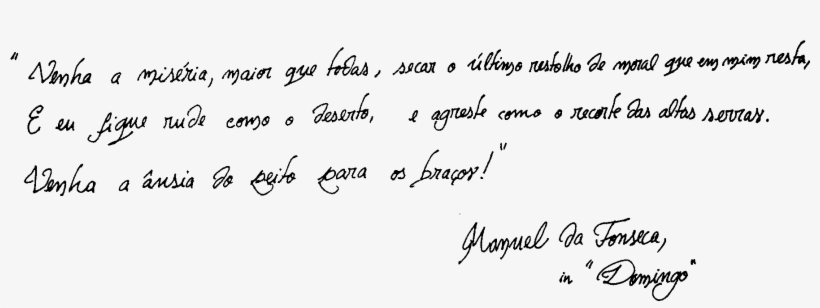 "Venha a miséria, maior que todas, secar o último restolho de moral que em mim resta,
E eu fique rude como o deserto, e agreste como o recorte das altas serras.
Venha a ânsia do peito para os braços!"
Manuel da Fonseca,
in "Domingo"